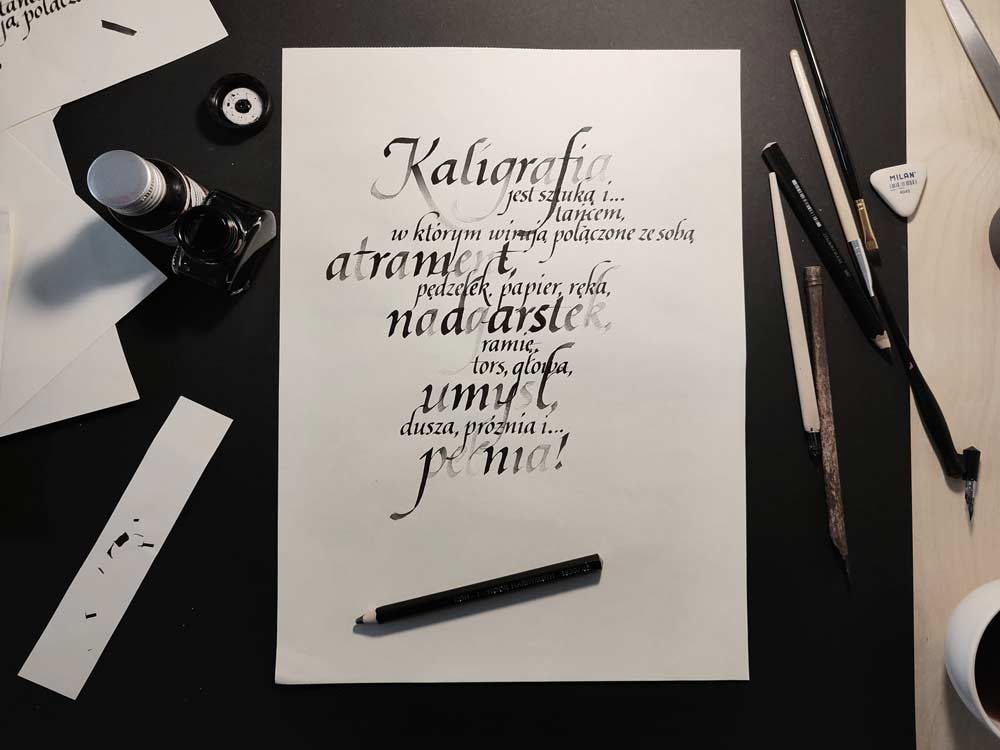 ja, połącz
Kaligrafia
jest sztuką i...
tańcem,
w którym wirują połączone ze sobą
atrament,
pędzelek, papier, ręka,
nadgarstek,
ramię,
tors, głowa,
umysł,
dusza, próżnia i...
pełnia!
MILAN